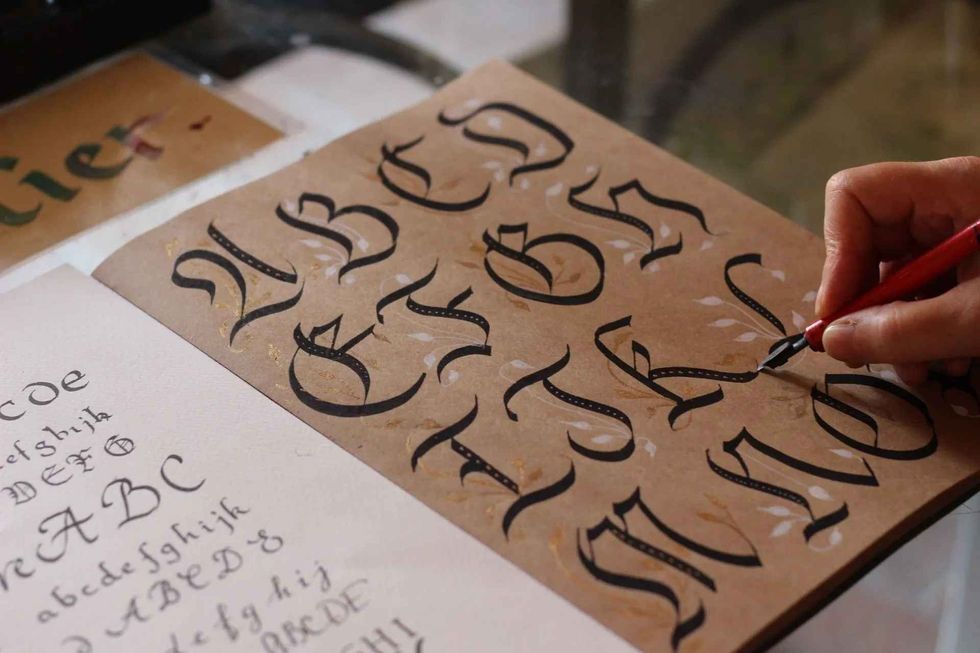 tier
A B C D
E F G H
I J K L
M N O
cde
efghijk
DEFG
ABC
abcdefghijk
ABCDE
efghij
ABCDE